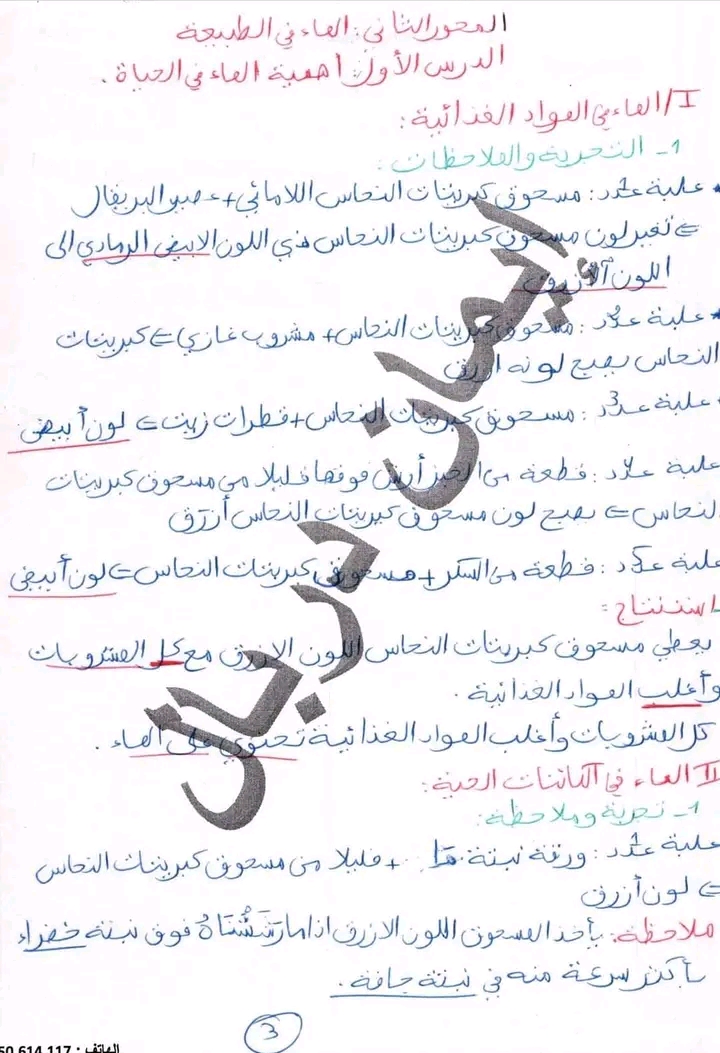 المحور الثاني: الماء في الطبيعة
الدرس الأول: أهمية الماء في الحياة.
I/ الماء في المواد الغذائية:
1- التجربة والملاحظات:
* علبة عدد 1: مسحوق كبريتات النحاس اللامائي + عصير البرتقال
⇐ تغير لون مسحوق كبريتات النحاس من اللون الابيض الرمادي الى
اللون الأزرق
* علبة عدد 2: مسحوق كبريتات النحاس + مشروب غازي ⇐ كبريتات
النحاس يصبح لونه أزرق
علبة عدد 3: مسحوق كبريتات النحاس + قطرات زيت ⇐ لون أبيض
علبة عدد 4: قطعة من الخبز أرش فوقها قليلا من مسحوق كبريتات
النحاس ⇐ يصبح لون مسحوق كبريتات النحاس أزرق
علبة عدد 5: قطعة من السكر + مسحوق كبريتات النحاس ⇐ لون أبيض
استنتاج:
يعطي مسحوق كبريتات النحاس اللون الازرق مع كل المشروبات
وأغلب المواد الغذائية.
كل المشروبات وأغلب المواد الغذائية تحتوي على الماء.
II الماء في الكائنات الحية:
1- تجربة وملاحظة:
علبة عدد 1: ورقة نبتة ما + قليلا من مسحوق كبريتات النحاس
⇐ لون أزرق
ملاحظة: يأخذ المسحوق اللون الازرق اذا ما رَشَشْنَاهُ فوق نبتة خضراء
بأكثر سرعة منه في نبتة جافة.
3
ايمان دربالي
الهاتف: 50 614 117